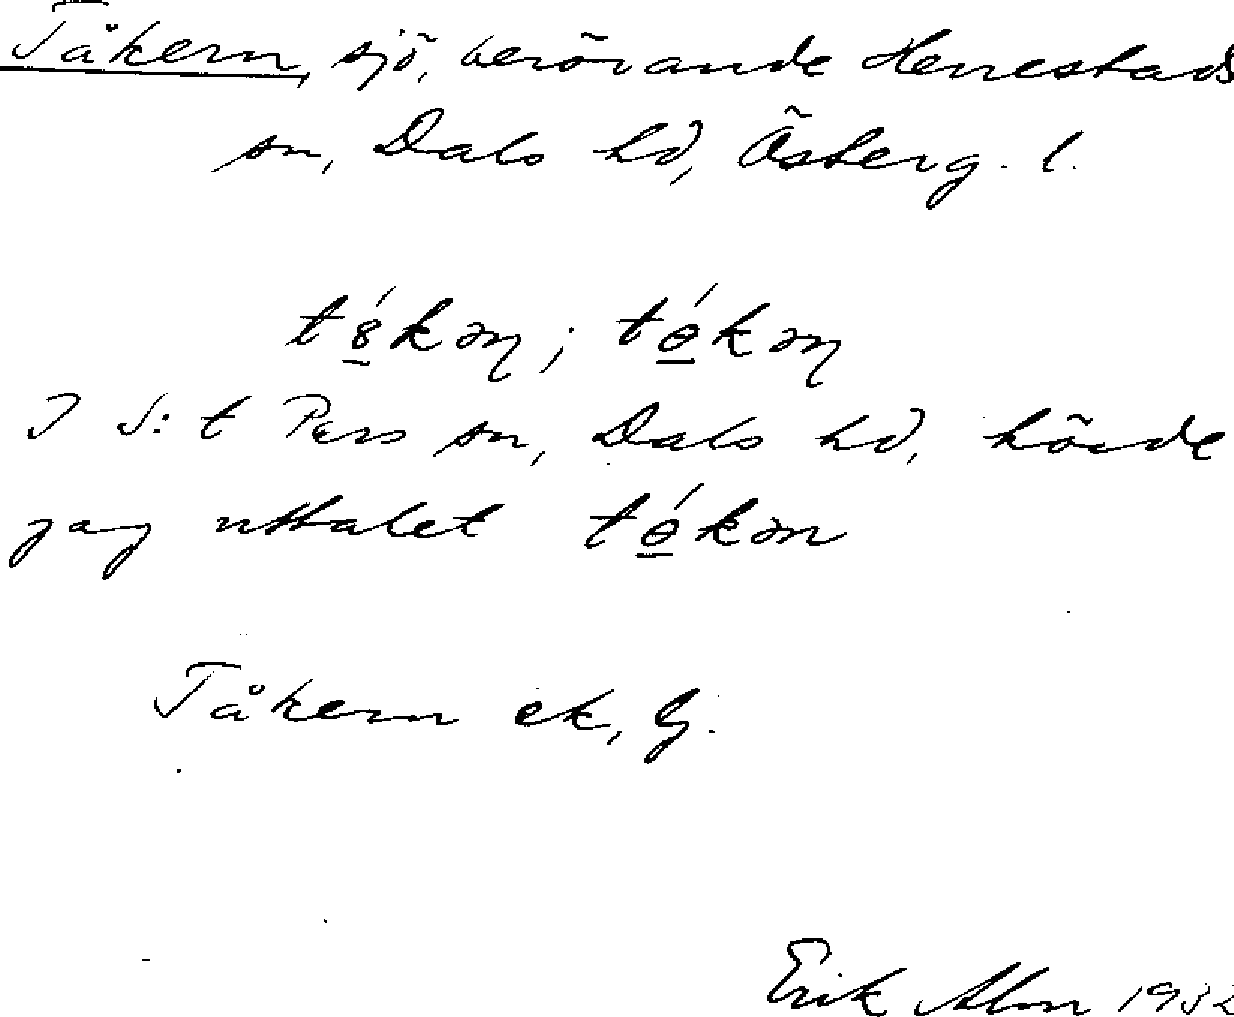 Tåkern, sjö, berörande Herrestads
sn, Dals hd, Österg. l.
tó̲kəɳ; tó̲kəɳ
I S:t Pers sn, Dals hd, hörde
jag uttalet tó̲kən
Tåkern ek, G.
Erik Alm 1932